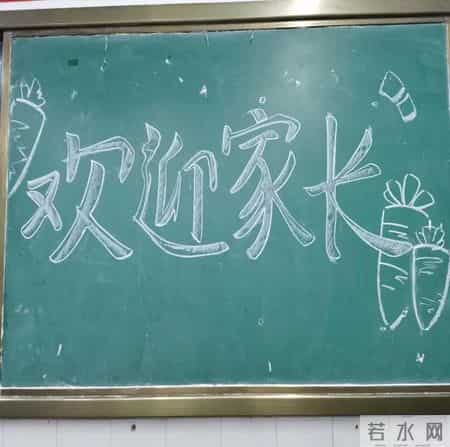 欢迎家长
若水网